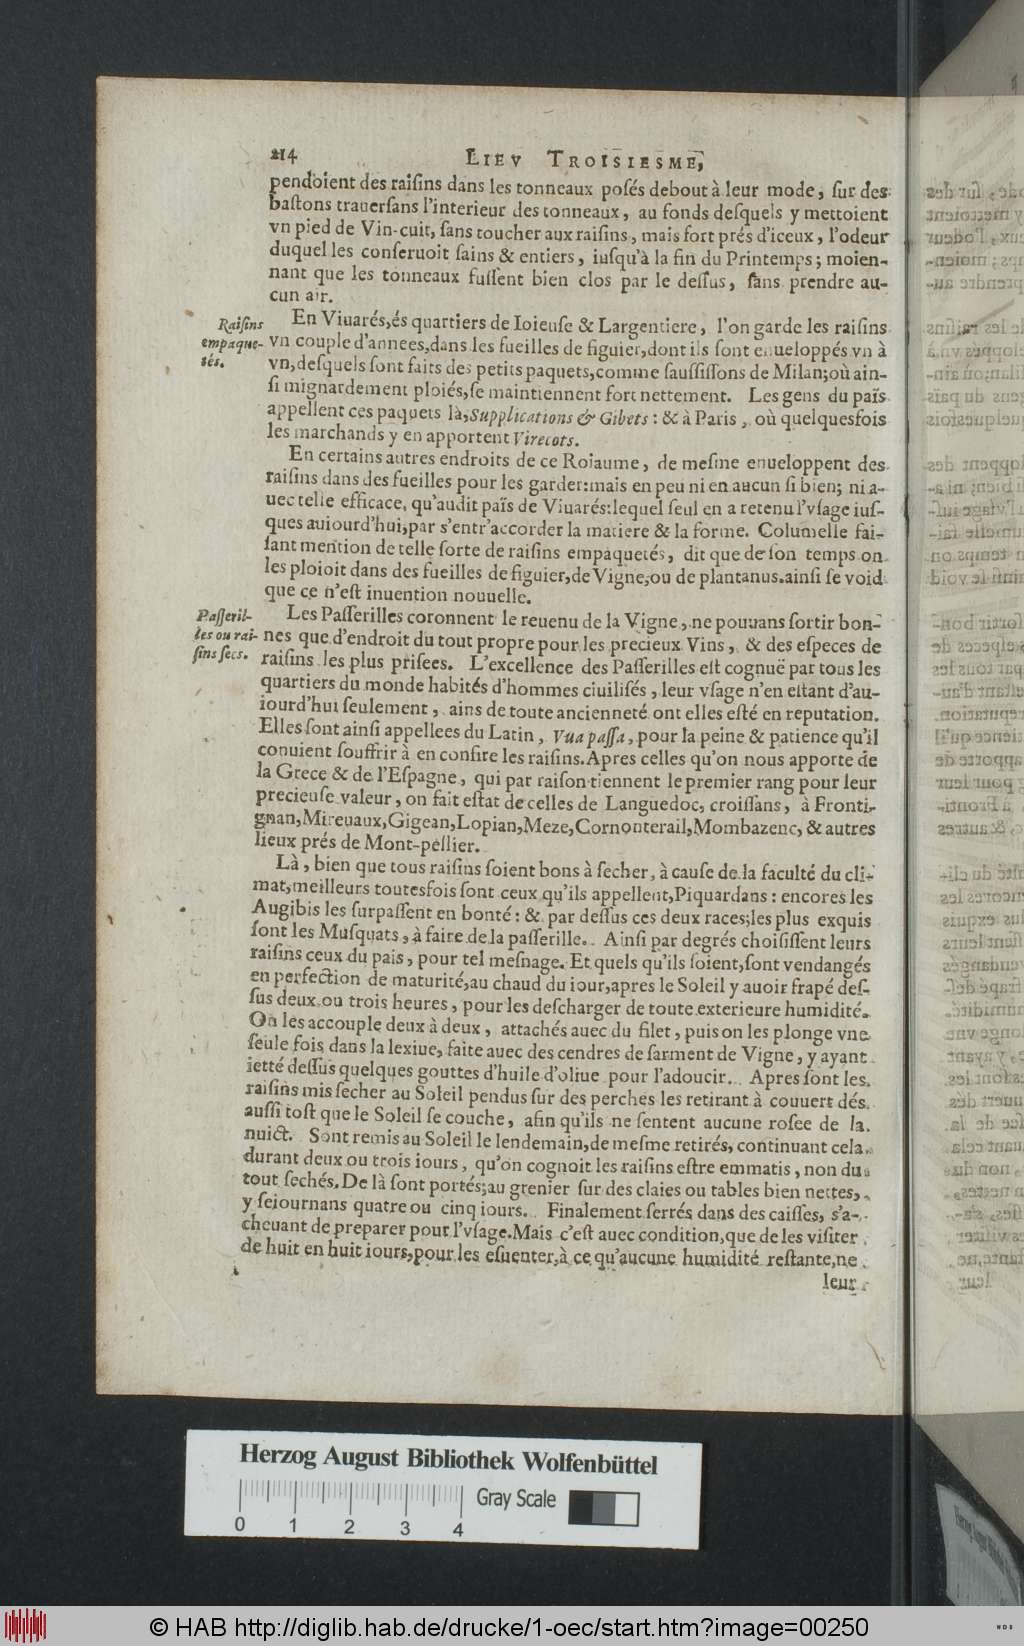 214 LIEV TROISIESME,
pendoient des raiſins dans les tonneaux poſés debout à leur mode, ſur des
baſtons trauerſans l'interieur des tonneaux, au fonds deſquels y mettoient
vn pied de Vin-cuit, ſans toucher aux raiſins, mais fort prés d'iceux, l'odeur
duquel les conſeruoit ſains & entiers, iuſqu'à la fin du Printemps; moien-
nant que les tonneaux fuſſent bien clos par le deſſus, ſans prendre au-
cun air.
Raiſins
empaque-
tés.
En Viuarés, és quartiers de Ioieuſe & Largentiere, l'on garde les raiſins
vn couple d'annees, dans les fueilles de figuier, dont ils ſont enueloppés vn à
vn, deſquels ſont faits des petits paquets, comme ſauſſiſſons de Milan; où ain-
ſi mignardement ploiés, ſe maintiennent fort nettement. Les gens du païs
appellent ces paquets là, Supplications & Gibets: & à Paris, où quelquesfois
les marchands y en apportent Virecots.
En certains autres endroits de ce Roiaume, de meſme enueloppent des
raiſins dans des fueilles pour les garder: mais en peu ni en aucun ſi bien; ni a-
uec telle efficace, qu'audit païs de Viuarés: lequel ſeul en a retenu l'vſage iuſ-
ques auiourd'hui, par s'entr'accorder la matiere & la forme. Columelle fai-
ſant mention de telle ſorte de raiſins empaquetés, dit que de ſon temps on
les ploioit dans des fueilles de figuier, de Vigne, ou de plantanus. ainſi ſe void
que ce n'eſt inuention nouuelle.
Paſſeril-
les ou rai-
ſins ſecs.
Les Paſſerilles coronnent le reuenu de la Vigne, ne pouuans ſortir bon-
nes que d'endroit du tout propre pour les precieux Vins, & des eſpeces de
raiſins les plus priſees. L'excellence des Paſſerilles eſt cognuë par tous les
quartiers du monde habités d'hommes ciuiliſés, leur vſage n'en eſtant d'au-
iourd'hui ſeulement, ains de toute ancienneté ont elles eſté en reputation.
Elles ſont ainſi appellees du Latin, Vua paſſa, pour la peine & patience qu'il
conuient ſouffrir à en confire les raiſins. Apres celles qu'on nous apporte de
la Grece & de l'Eſpagne, qui par raiſon tiennent le premier rang pour leur
precieuſe valeur, on fait eſtat de celles de Languedoc, croiſſans, à Fronti-
gnan, Mireuaux, Gigean, Lopian, Meze, Cornonterail, Mombazenc, & autres
lieux prés de Mont-pellier.
Là, bien que tous raiſins ſoient bons à ſecher, à cauſe de la faculté du cli-
mat, meilleurs toutesfois ſont ceux qu'ils appellent, Piquardans: encores les
Augibis les ſurpaſſent en bonté: & par deſſus ces deux races; les plus exquis
ſont les Muſquats, à faire de la paſſerille. Ainſi par degrés choiſiſſent leurs
raiſins ceux du pais, pour tel meſnage. Et quels qu'ils ſoient, ſont vendangés
en perfection de maturité, au chaud du iour, apres le Soleil y auoir frapé deſ-
ſus deux ou trois heures, pour les deſcharger de toute exterieure humidité.
On les accouple deux à deux, attachés auec du filet, puis on les plonge vne
ſeule fois dans la lexiue, faite auec des cendres de ſarment de Vigne, y ayant
ietté deſſus quelques gouttes d'huile d'oliue pour l'adoucir. Apres ſont les
raiſins mis ſecher au Soleil pendus ſur des perches les retirant à couuert dés
auſſi toſt que le Soleil ſe couche, afin qu'ils ne ſentent aucune roſee de la
nuict. Sont remis au Soleil le lendemain, de meſme retirés, continuant cela
durant deux ou trois iours, qu'on cognoit les raiſins eſtre emmatis, non du
tout ſechés. De là ſont portés; au grenier ſur des claies ou tables bien nettes,
y ſeiournans quatre ou cinq iours. Finalement ſerrés dans des caiſſes, s'a-
cheuant de preparer pour l'vſage. Mais c'eſt auec condition, que de les viſiter
de huit en huit iours, pour les eſuenter, à ce qu'aucune humidité reſtante, ne
leur
Herzog August Bibliothek Wolfenbüttel
Gray Scale
0 1 2 3 4
© HAB http://diglib.hab.de/drucke/1-oec/start.htm?image=00250